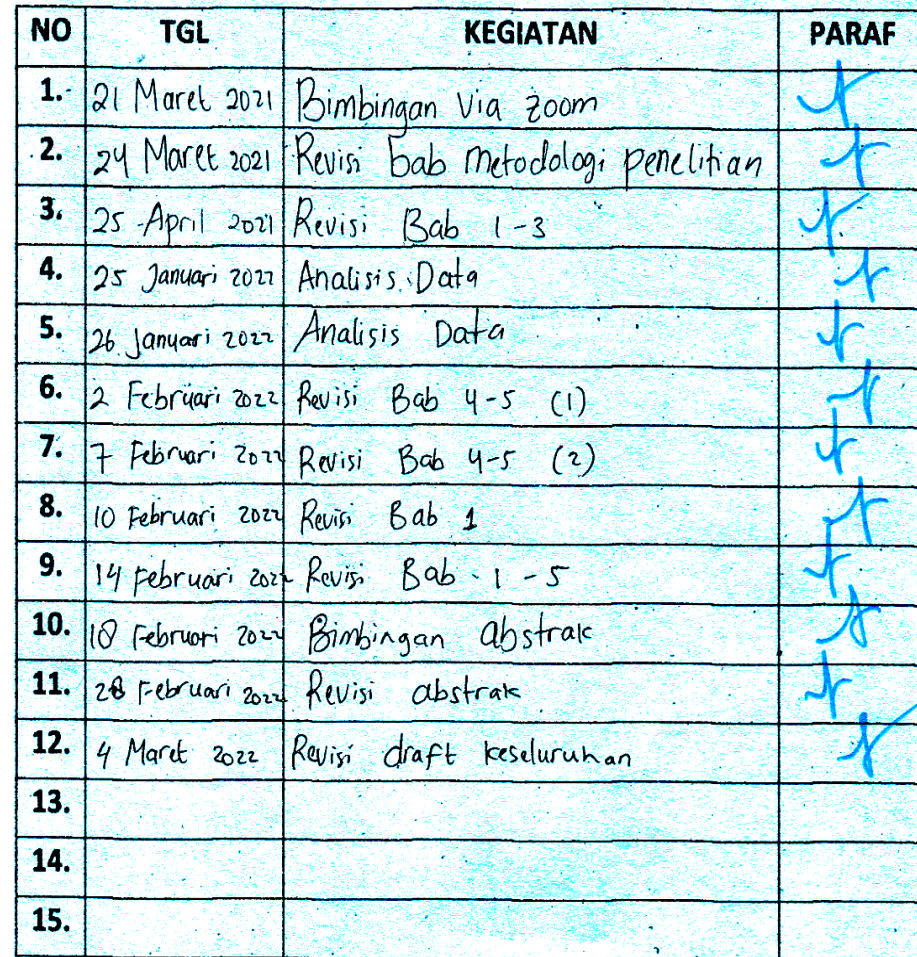 NO TGL KEGIATAN PARAF
1. 21 Maret 2021 Bimbingan Via zoom
2. 24 Maret 2021 Revisi bab metodologi penelitian
3. 25 April 2021 Revisi Bab 1-3
4. 25 Januari 2022 Analisis Data
5. 26 Januari 2022 Analisis Data
6. 2 Februari 2022 Revisi Bab 4-5 (1)
7. 7 Februari 2022 Revisi Bab 4-5 (2)
8. 10 Februari 2022 Revisi Bab 1
9. 14 Februari 2022 Revisi Bab 1 - 5
10. 18 Februari 2022 Bimbingan abstrak
11. 28 Februari 2022 Revisi abstrak
12. 4 Maret 2022 Revisi draft keseluruhan
13.
14.
15.